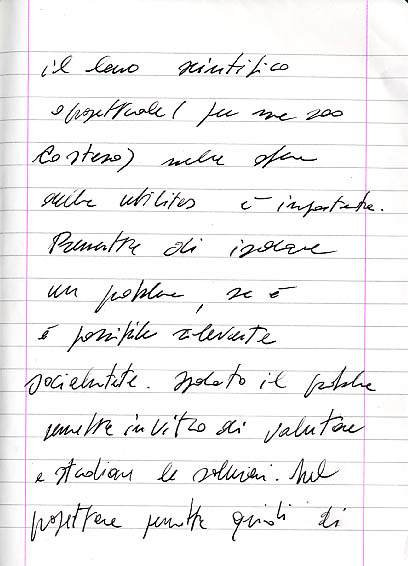 il            scientifico
e progettuale ( per me sono
lo stesso) nella sfera
della utilitas è importante.
Permette di isolare
un problema, se è
è possibile rilevante
socialmente. isolato il problema
permette in vitro di valutare
e studiare le soluzioni. Nel
progettare permette quindi di